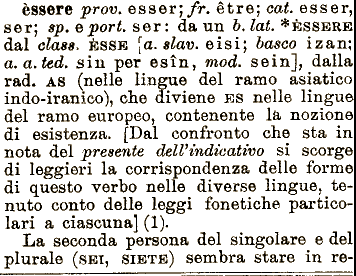 èssere prov. esser; fr. être; cat. esser,
ser; sp. e port. ser: da un b. lat. *ÈSSERE
dal class. ÈSSE [a. slav. eisi; basco izan;
a. a. ted. sin per esîn, mod. sein], dalla
rad. AS (nelle lingue del ramo asiatico
indo-iranico), che diviene ES nelle lingue
del ramo europeo, contenente la nozione
di esistenza. [Dal confronto che sta in
nota del presente dell'indicativo si scorge
di leggieri la corrispondenza delle forme
di questo verbo nelle diverse lingue, te-
nuto conto delle leggi fonetiche partico-
lari a ciascuna] (1).
La seconda persona del singolare e del
plurale (SEI, SIETE) sembra stare in re-